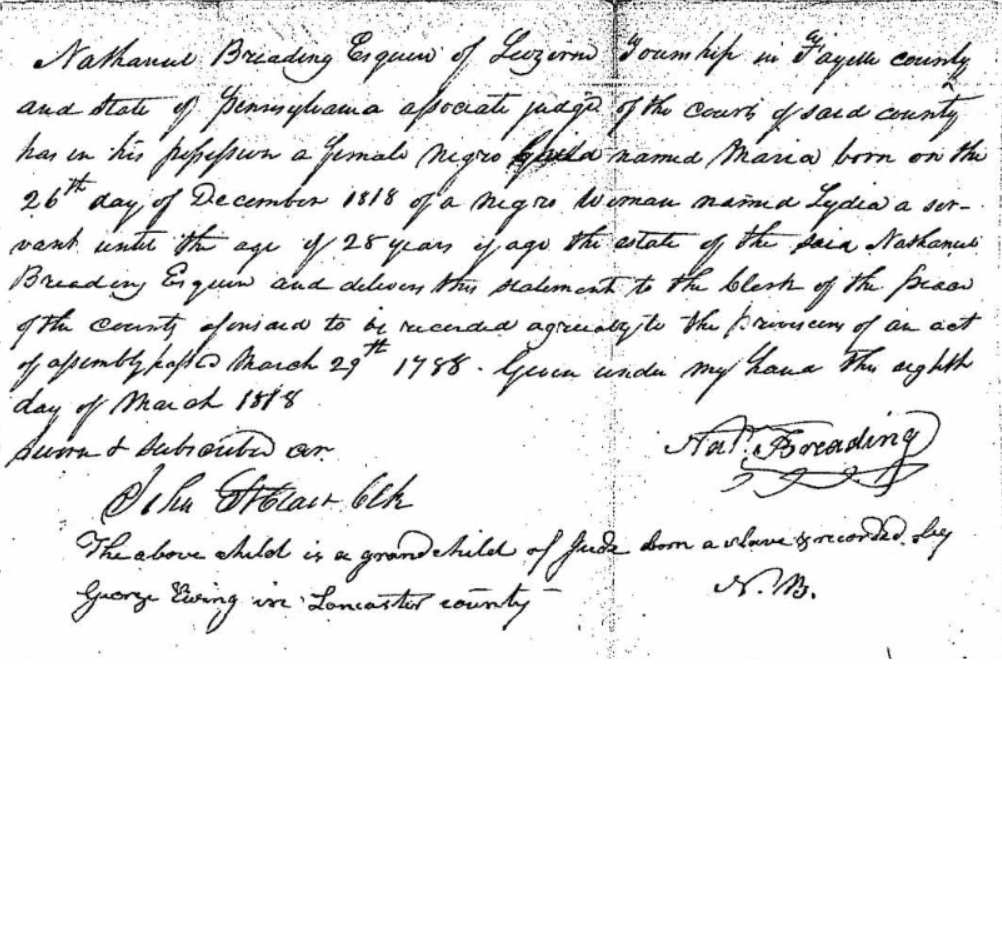 Nathaniel Breading Esquire of Luzerne Township in Fayette county
and state of Pennsylvania associate judge of the courts of said county
has in his possession a female Negro child named Maria born on the
26th day of December 1818 of a Negro Woman named Lydia a ser-
vant until the age of 28 years of age the estate of the said Nathaniel
Breading Esquire and delivers this statement to the Clerk of the peace
of the county aforesaid to be recorded agreeably to the provisions of an act
of assembly passed March 29th 1788. Given under my hand this eighth
day of March 1818
Sworn & subscribed
Nat. Breading
John St Clair Clk
The above child is a grandchild of Jude born a slave & recorded by
George Ewing in Lancaster county
N. B.